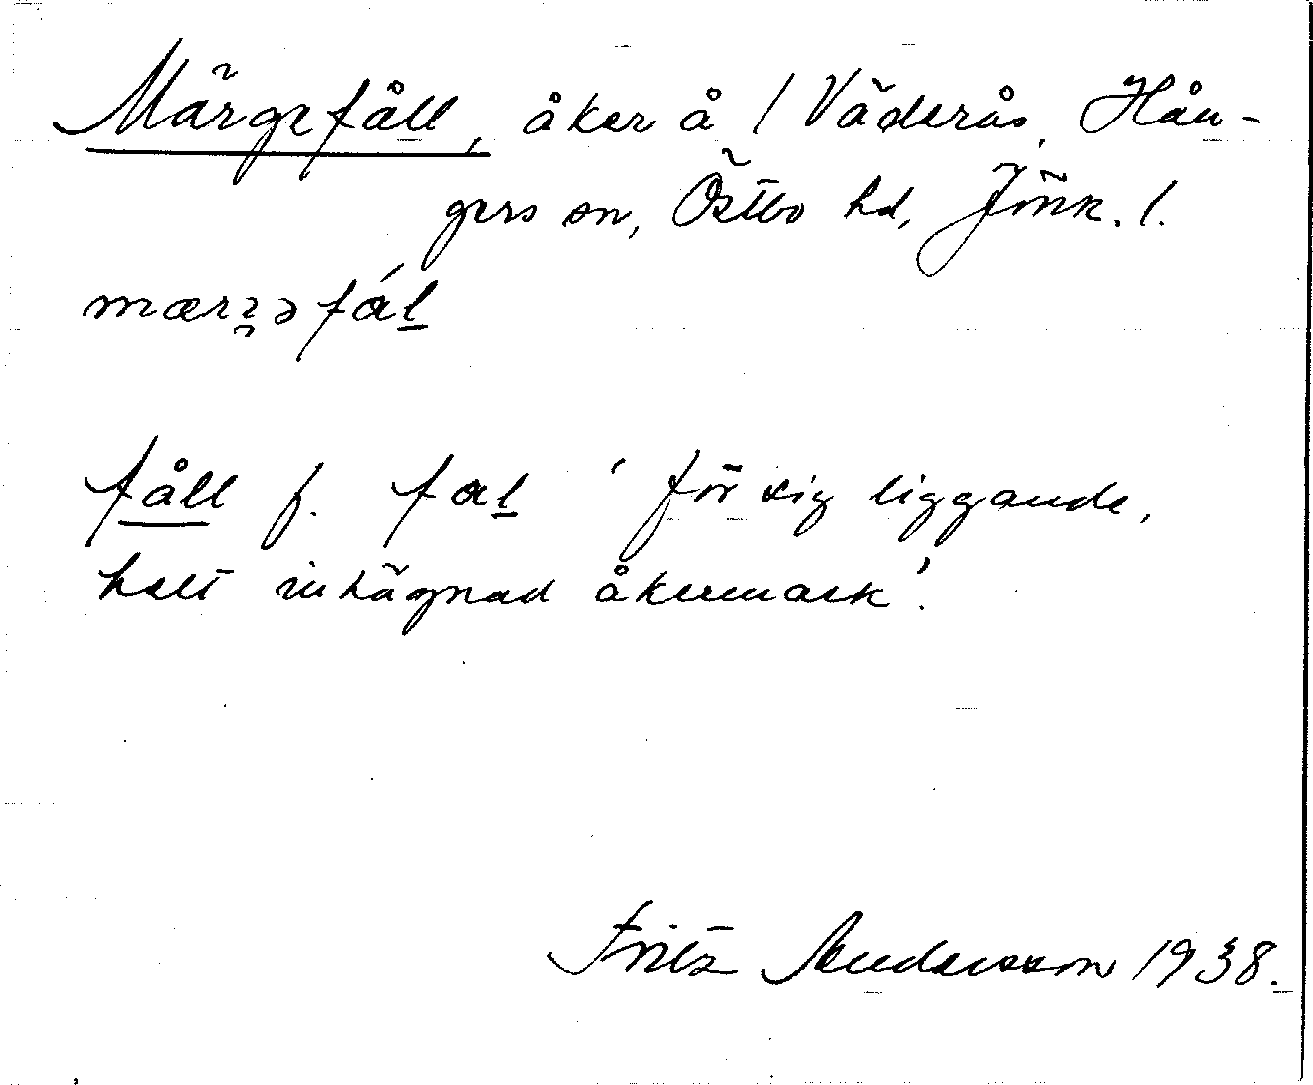 Märgefåll, åker å / Väderås, Hån-
gers sn, Östbo hd, Jönk. l.
fåll f. fal ' för sig liggande,
helt inhägnad åkermark'.
Fritz Andersson 1938.